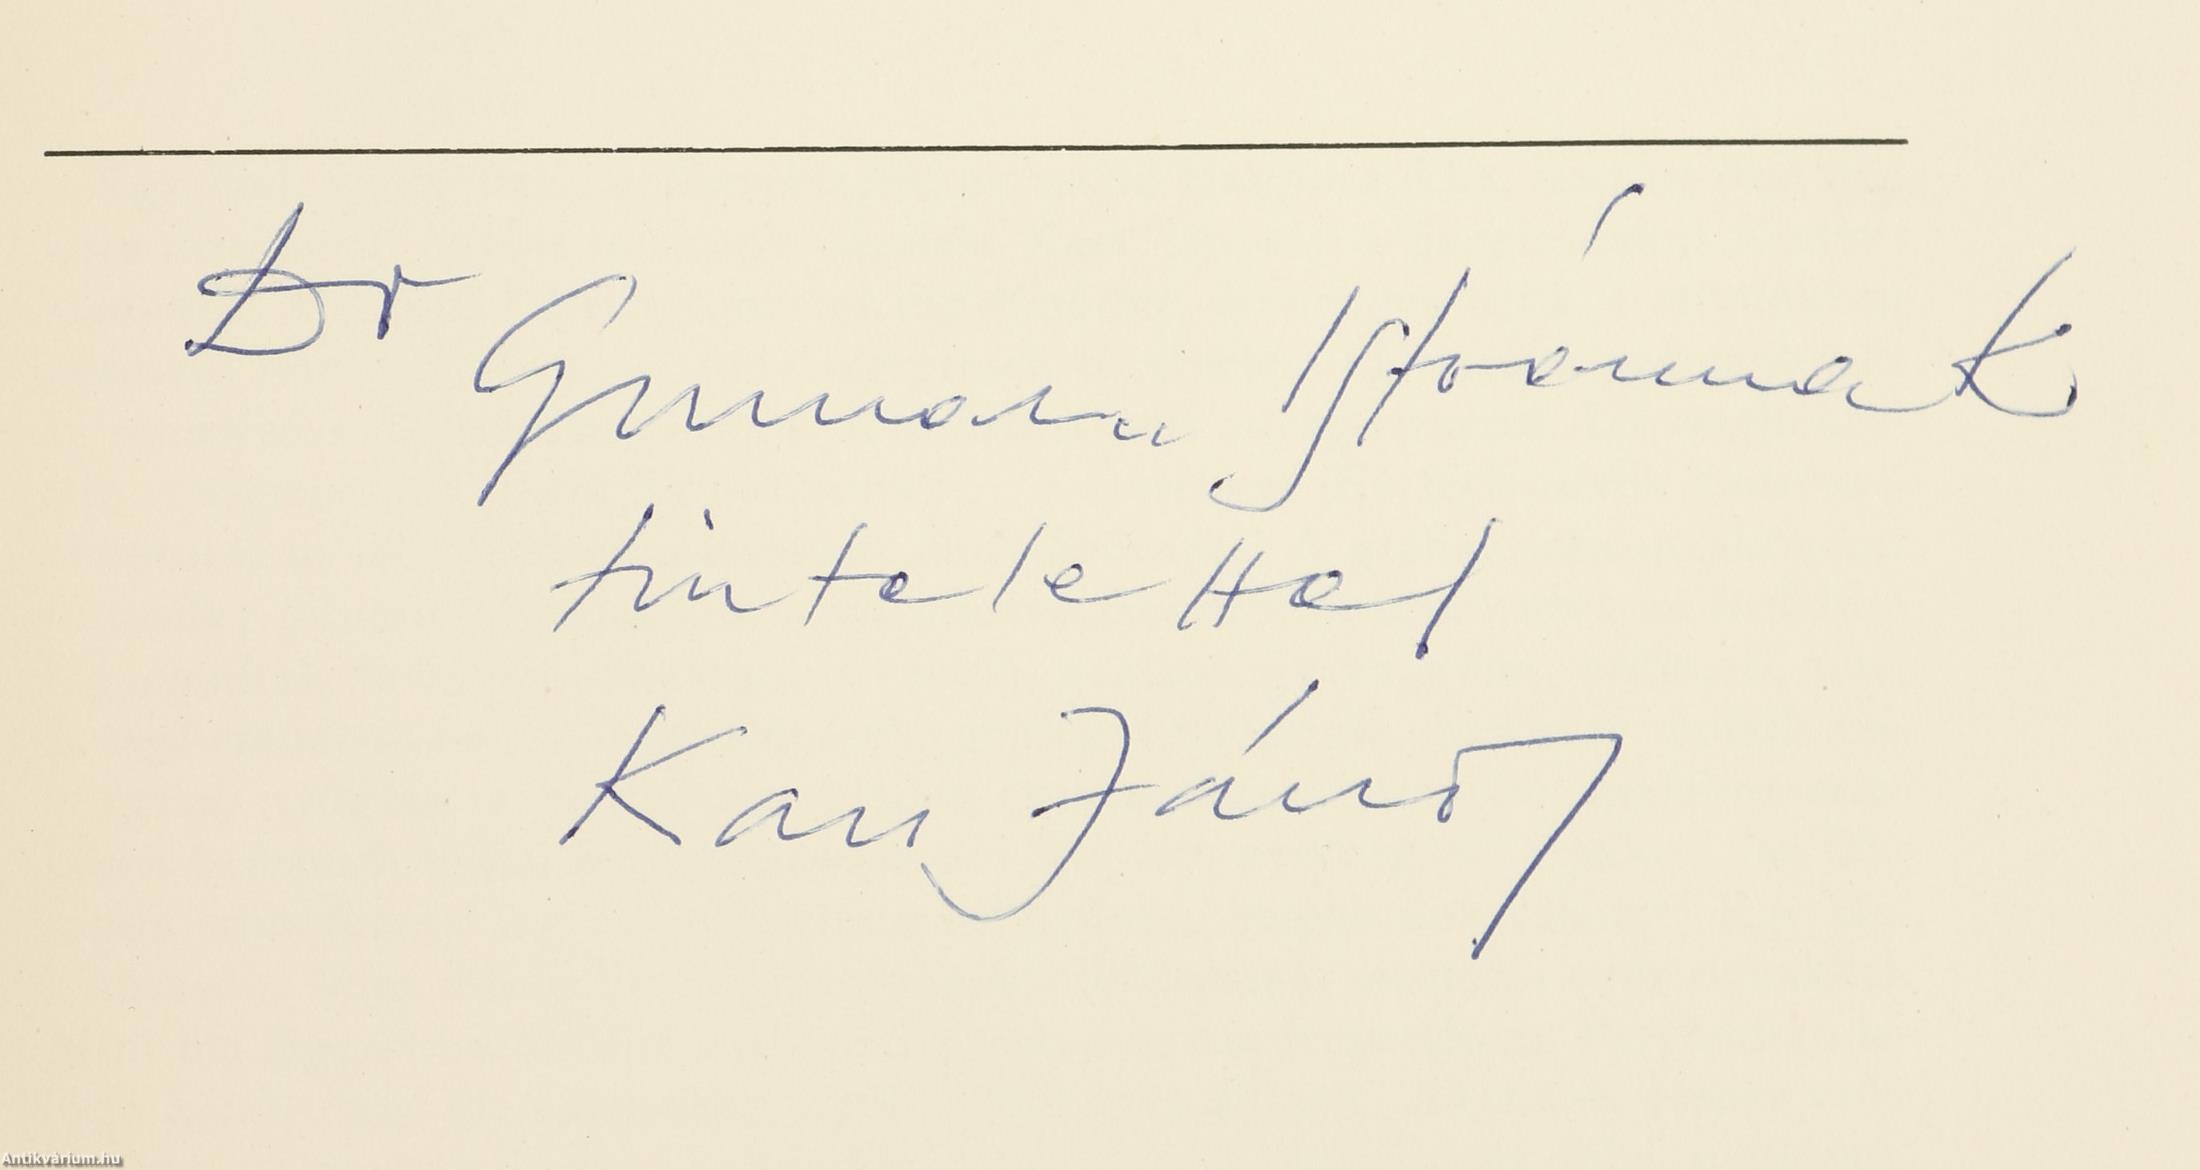 Dr Istvánnak
tisztelettel
Kass János
Antikvárium.hu